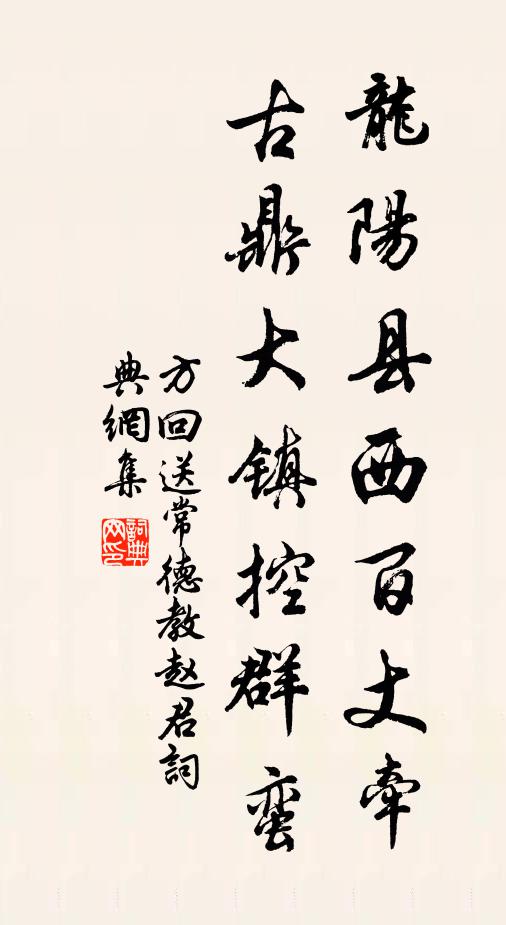 龍陽县西百丈牽
古鼎大镇控群蛮
方回送常德教赵君詞
典網集
詞典网印